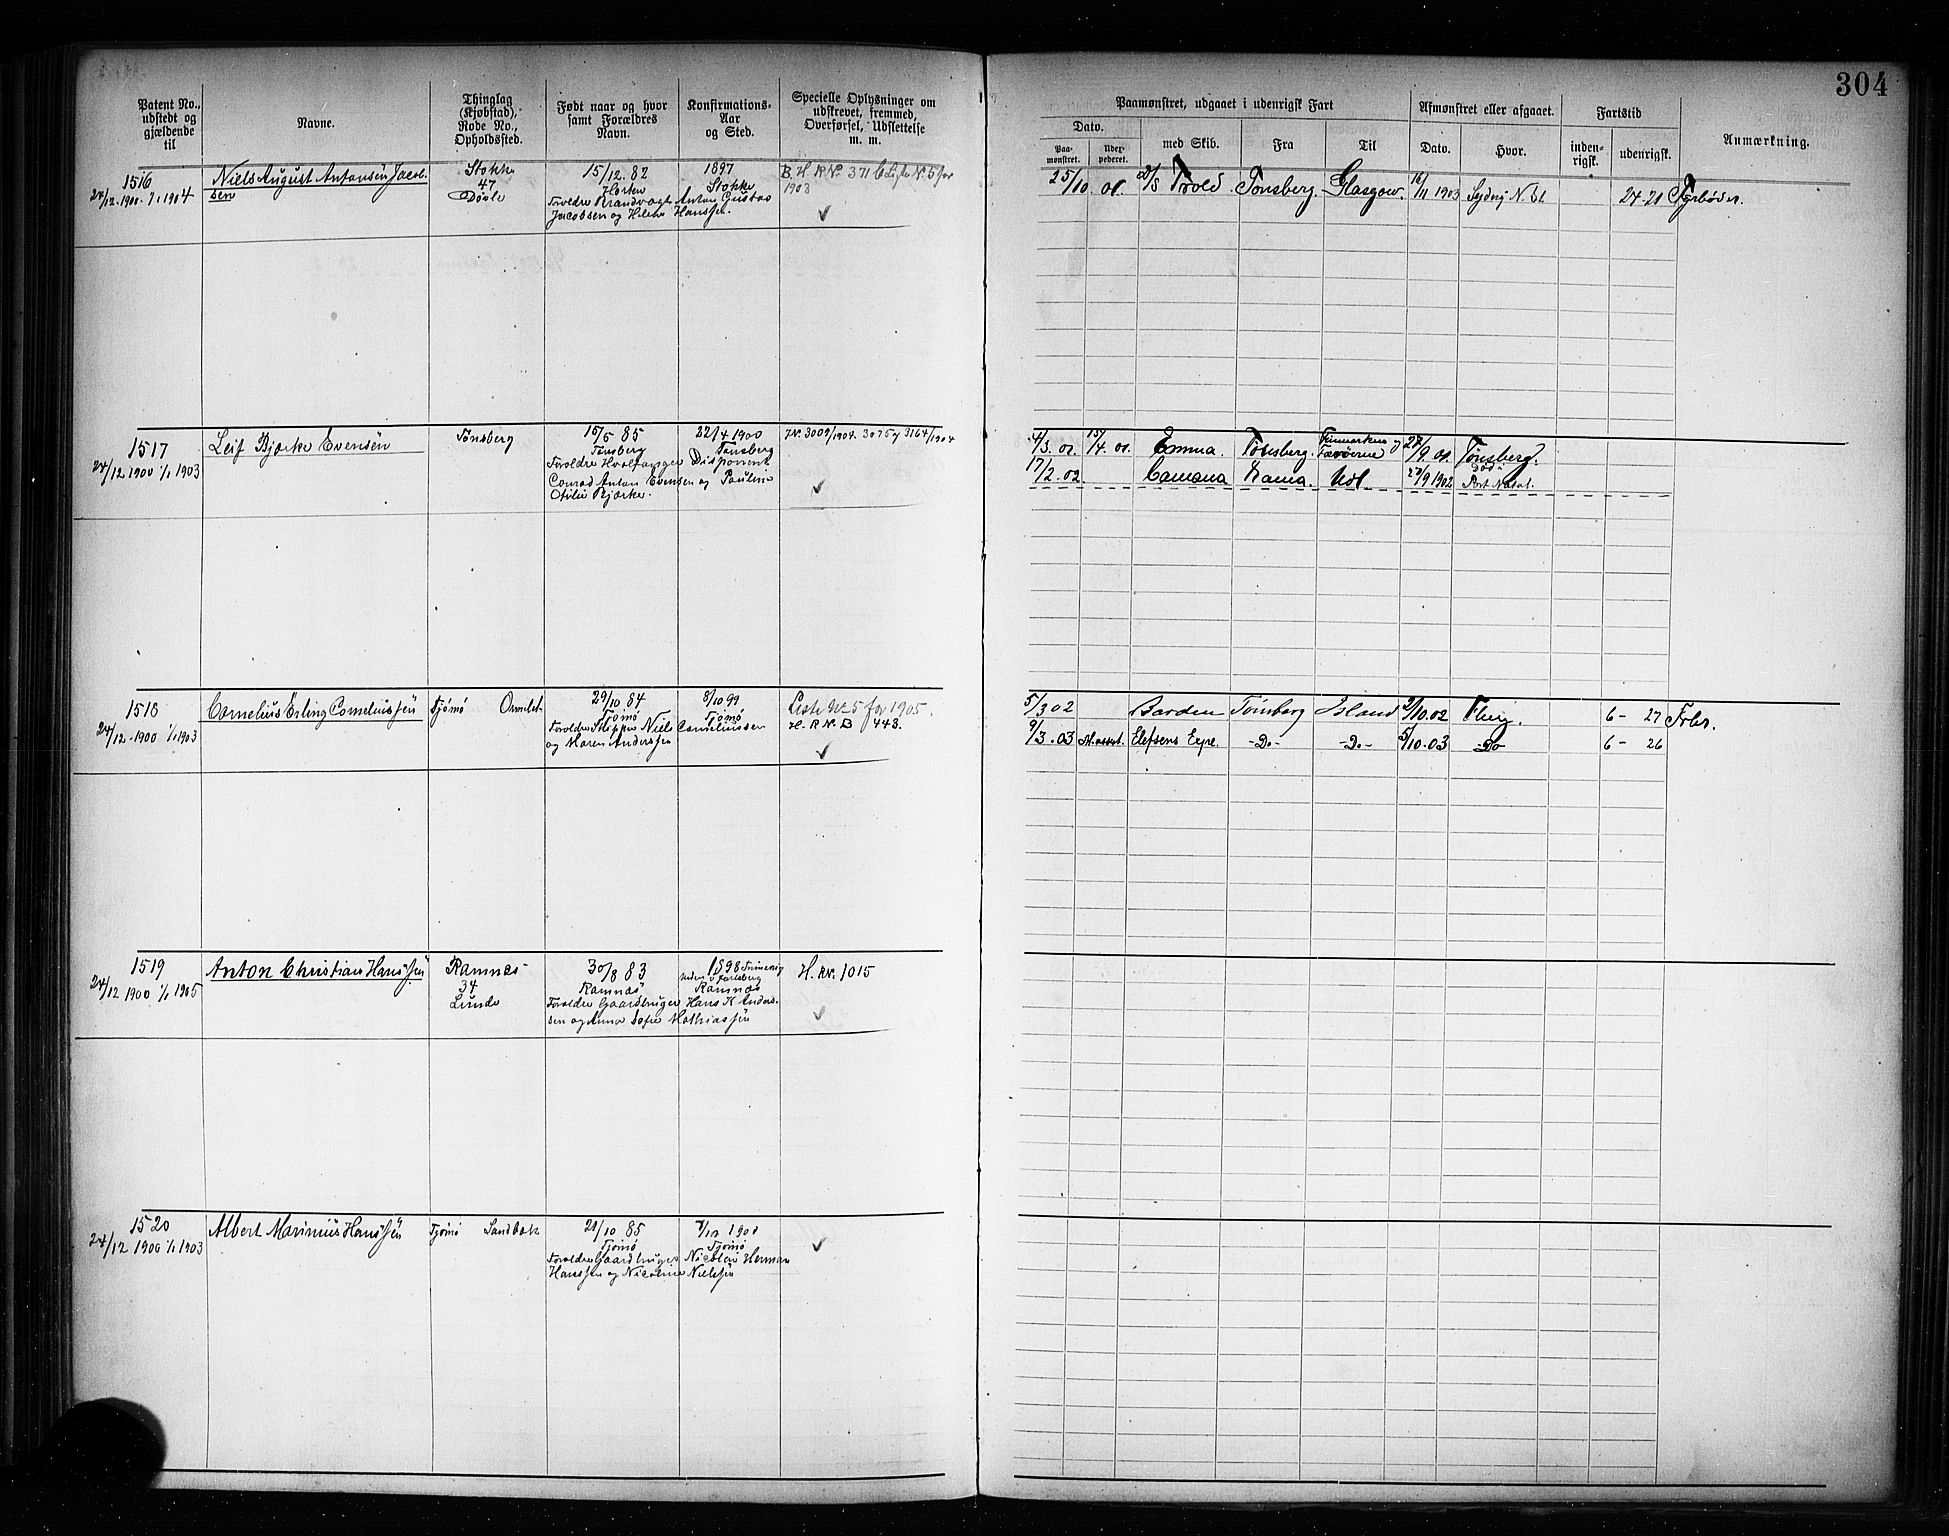 304
Patent No., udstedt og gjældende til
Navne.
Thinglag (Kjøbstad), Rode No., Opholdssted.
Født naar og hvor samt Forældres Navn.
Konfirmations-Aar og Sted.
Specielle Oplysninger om udskrevet, fremmed, Overførsel, Udslettelse m. m.
Paamønstret, udgaaet i udenrigsk Fart
Afmønstret eller afgaaet.
Fartstid
Anmærkning.
Dato.
Paa-mønstret.
med Skib.
Fra
Til
Dato.
Hvor.
inden-rigsk.
udenrigsk.
1516
24/12 1900 1/1 1904
Niels August Antonsen Jacobsen
Stokke
47
15/12. 82
Forældre Brandvagt Anton Gustav
Jacobsen og Helene Hanssen.
1897
Stokke
B. H. R.Nº 371
1903
25/10 01
Trold
Tønsberg
Glasgow.
16/11 1903
24-21
Fyrbøder.
1517
24/12 1900 1/1 1903
Leif Bjerke Evensen
Tønsberg
15/5 85
Tønsberg
Forældre Hvalfanger Disponent
Conrad Anton Evensen og Pauline
Otilie Bjerke.
22/4 1900
Tønsberg
J.Nº 3009/1904. 3075 og 3164/1904
4/3. 01. 15/4. 01. Emma. Tønsberg. Finmarken og Færøerne 27/9. 01. Tønsberg.
17/2. 02 27/9 1902 Port Natal.
1518
24/12 1900 1/1 1903
Cornelius Erling Corneliussen
Tjømø
29/10 84
Tjømø
Forældre Skipper Niels Corneliussen
og Maren Anderssen
8/10 99
Tjømø
Liste Nº 5 for 1905.
H. R.Nº B 443.
5/3 02 Barden Tønsberg Island 2/10. 02 Tberg. 6 - 27
9/3. 03 M.asst. Elefsens Expr. -Do- -Do- 5/10. 03 -Do- 6 - 26
1519
24/12 1900 1/1 1905
Anton Christian Hanssen
Ramnes
34
Linde
30/8 83
Ramnæs
Forældre Gaardbruger Hans K Andersen
og Anna Sofie Mathiassen
1898
Ramnæs
H. R.Nº. 1015
1520
24/12 1900 1/1 1903
Albert Marinius Hanssen
Tjømø Sandbæk
21/10 85
Tjømø
Forældre Gaardbruger Nicolai Herman
Hanssen og Nicoline Nielsen
7/10 1900
Tjømø